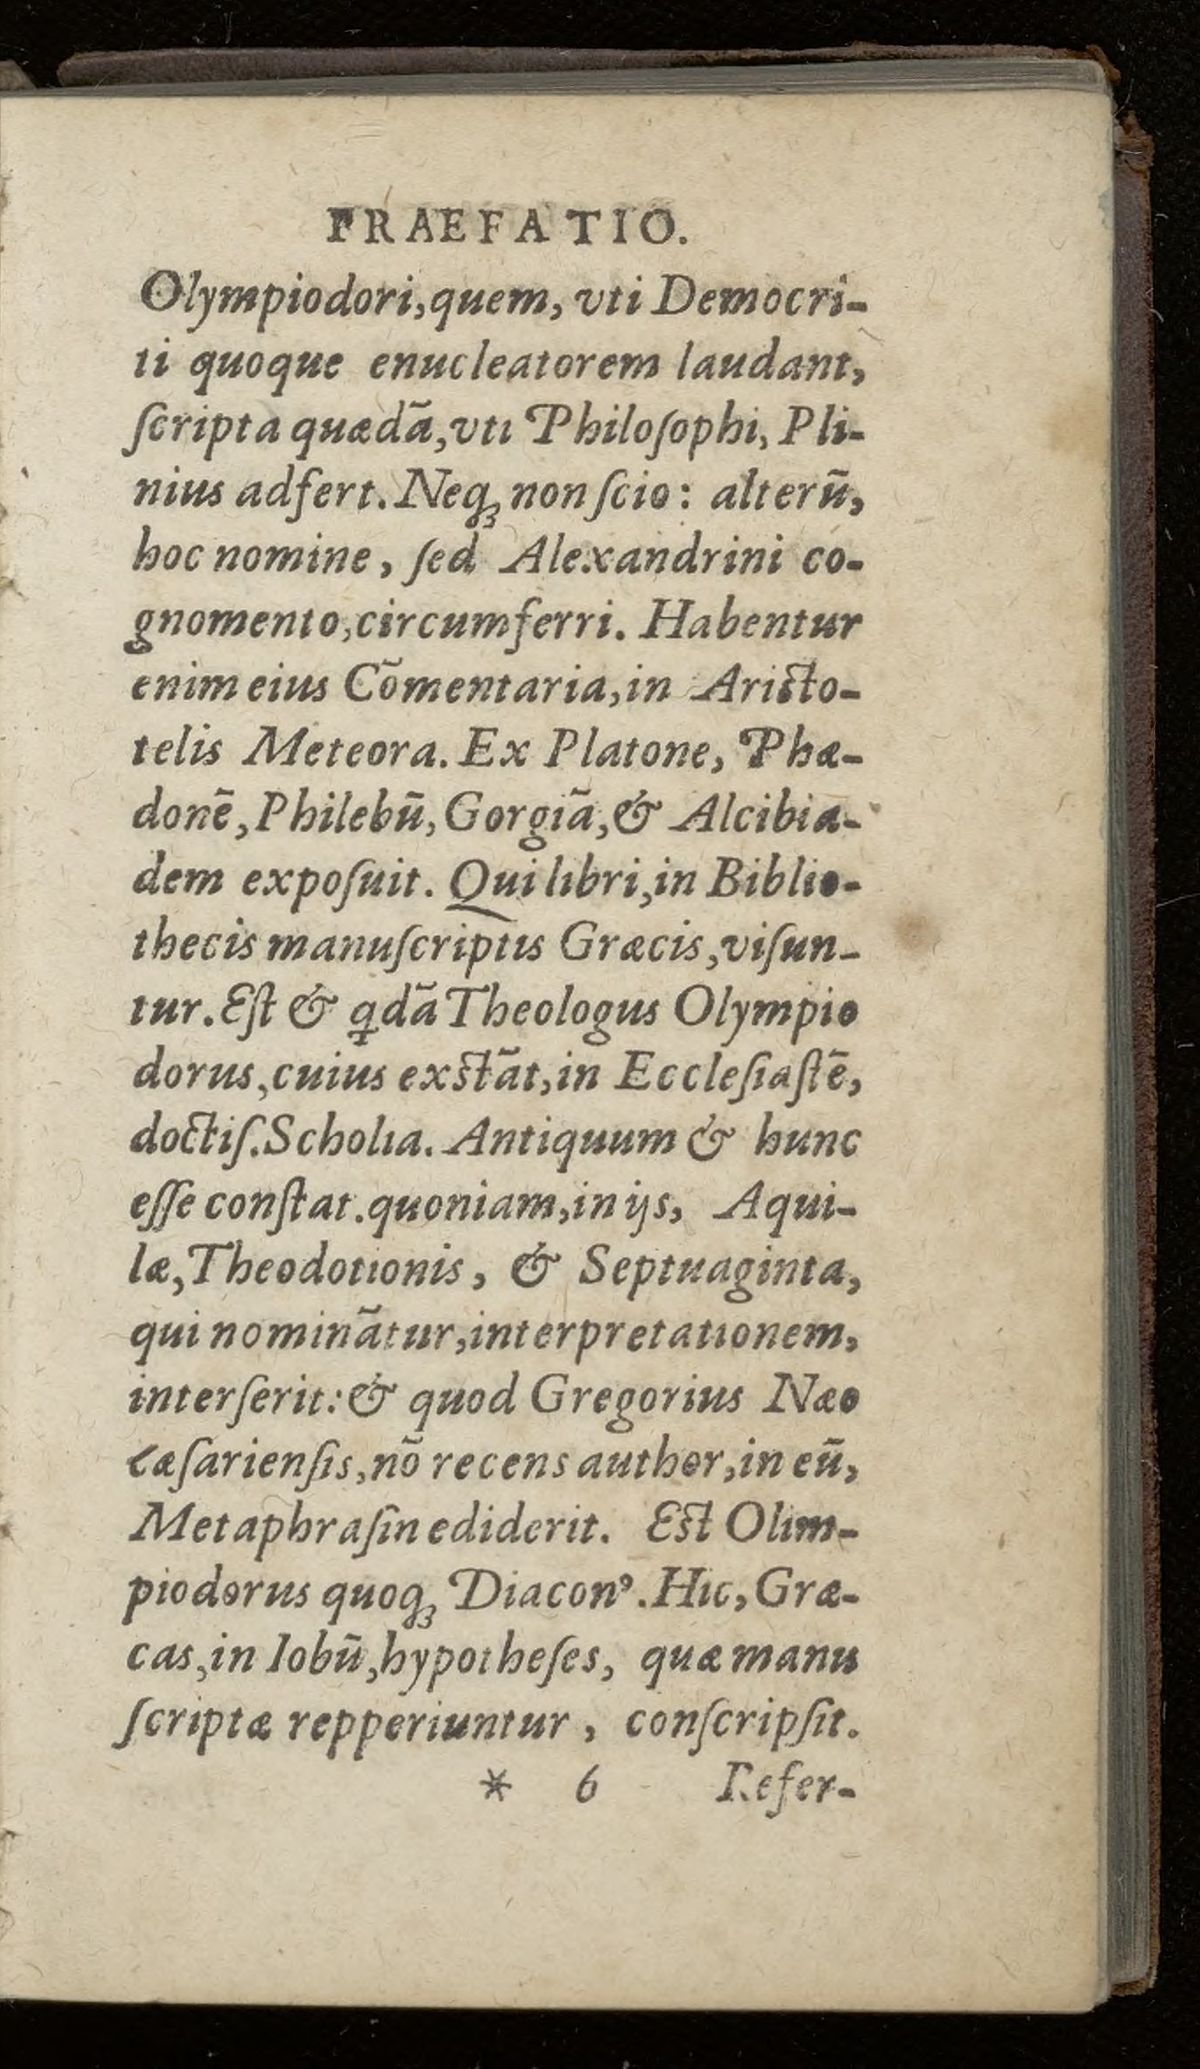 PRAEFATIO.
Olympiodori,quem, vti Democri-
ti quoque enucleatorem laudant,
ſcripta quædã,vti Philoſophi, Pli-
nius adfert. Neqꝫ non ſcio: alterũ,
hoc nomine, ſed Alexandrini co-
gnomento,circumferri. Habentur
enim eius Cõmentaria,in Ariſto-
telis Meteora. Ex Platone, Phæ-
donẽ,Philebũ,Gorgiã,& Alcibia-
dem expoſuit. Qui libri,in Biblio-
thecis manuſcriptis Græcis,viſun-
tur. Eſt & qdã Theologus Olympio
dorus,cuius exſtãt,in Eccleſiaſtẽ,
doctiſ.Scholia. Antiquum & hunc
eſſe conſtat.quoniam,in ijs, Aqui-
læ,Theodotionis, & Septuaginta,
qui nominãtur,interpretationem,
interſerit:& quod Gregorius Næo
cæſarienſis,nõ recens author,in eũ,
Metaphraſin ediderit. Eſt Olim-
piodorus quoqꝫ Diaconꝰ.Hic,Græ-
cas,in Iobũ,hypotheſes, quæ manu
ſcriptæ repperiuntur, conſcripſit.
* 6 Refer-